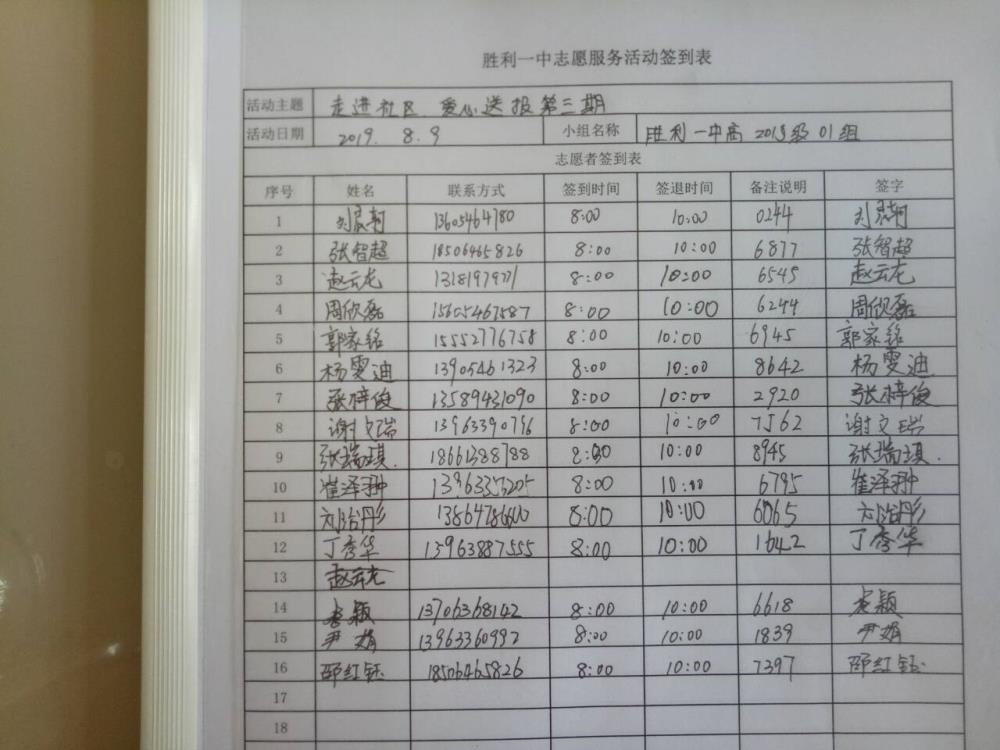 胜利一中志愿服务活动签到表
活动主题 走进社区、爱心送报第三期
活动日期 2019. 8. 9 小组名称 胜利一中高2018级01组
志愿者签到表
序号 姓名 联系方式 签到时间 签退时间 备注说明 签字
1 13605464780 8:00 10:00 0244
2 张智超 18506465826 8:00 10:00 6877 张智超
3 赵云龙 8:00 10:00 6545 赵云龙
4 周欣磊 15605467587 8:00 10:00 6244 周欣磊
5 郭家铭 15552776758 8:00 10:00 6945 郭家铭
6 杨雯迪 13905461323 8:00 10:00 8642 杨雯迪
7 张梓俊 13589431090 8:00 10:00 2920 张梓俊
8 谢文瑞 13963390796 8:00 10:00 7562 谢文瑞
9 张瑞琪. 18661388788 8:00 10:00 8945 张瑞琪.
10 崔泽翀 13963353205 8:00 10:00 6795 崔泽翀
11 刘治彤 13864786600 8:00 10:00 6065 刘治彤
12 丁秀华 13963887555 8:00 10:00 1642 丁秀华
13 赵云龙
14 13706368142 8:00 10:00 6618
15 尹娟 13963360992 8:00 10:00 1839 尹娟
16 邵红钰 18506465826 8:00 10:00 7397 邵红钰
17
18